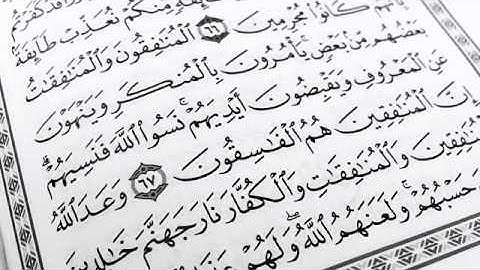 كَفَرْتُم
مِّنكُمْ نُعَذِّبْ طَآئِفَةًۢ
بِأَنَّهُمْ كَانُوا۟ مُجْرِمِينَ ٦٦ ٱلْمُنَٰفِقُونَ وَٱلْمُنَٰفِقَٰتُ
بَعْضُهُم مِّنۢ بَعْضٍ يَأْمُرُونَ بِٱلْمُنكَرِ وَيَنْهَوْنَ
عَنِ ٱلْمَعْرُوفِ وَيَقْبِضُونَ أَيْدِيَهُمْ نَسُوا۟ ٱللَّهَ فَنَسِيَهُمْ
إِنَّ ٱلْمُنَٰفِقِينَ هُمُ ٱلْفَٰسِقُونَ ٦٧ وَعَدَ ٱللَّهُ
ٱلْمُنَٰفِقِينَ وَٱلْمُنَٰفِقَٰتِ وَٱلْكُفَّارَ نَارَ جَهَنَّمَ خَٰلِدِينَ
حَسْبُهُمْ وَلَعَنَهُمُ ٱللَّهُ وَلَهُمْ